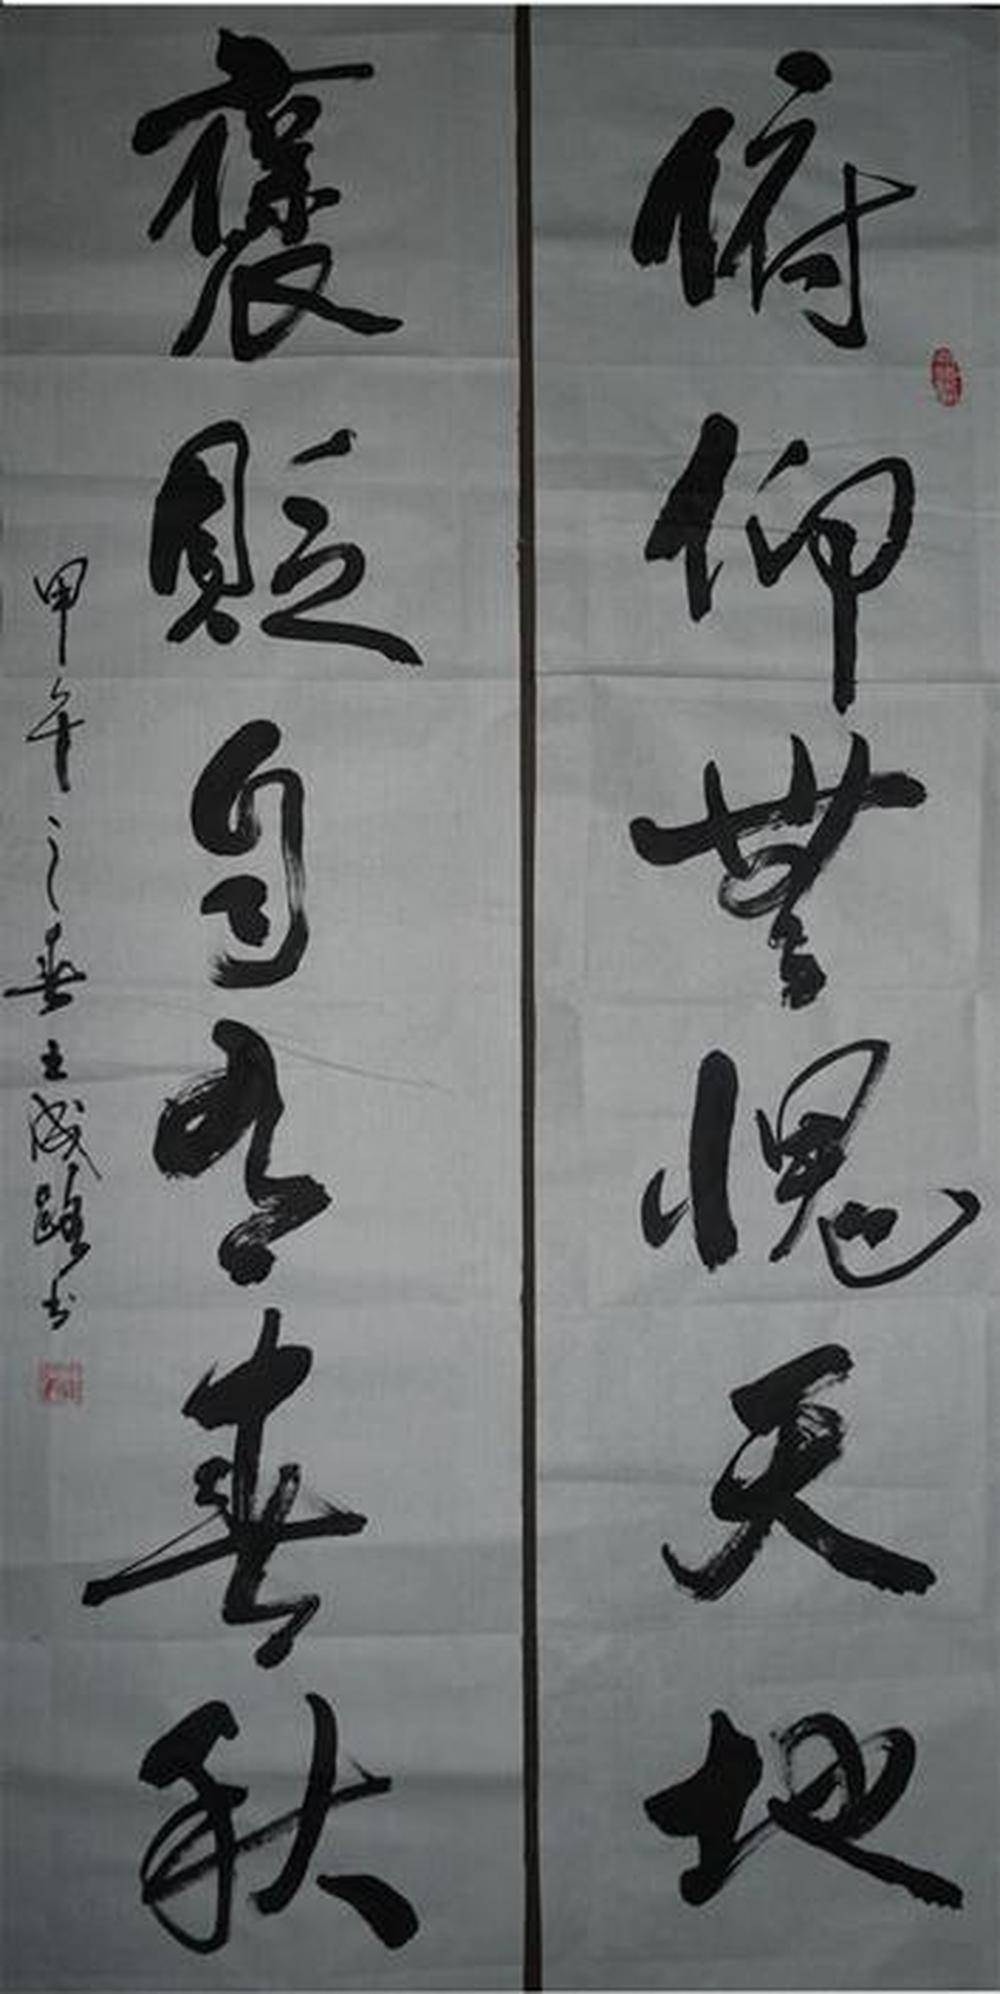 俯仰無愧天地
褒貶自有春秋
甲午之春王成路书